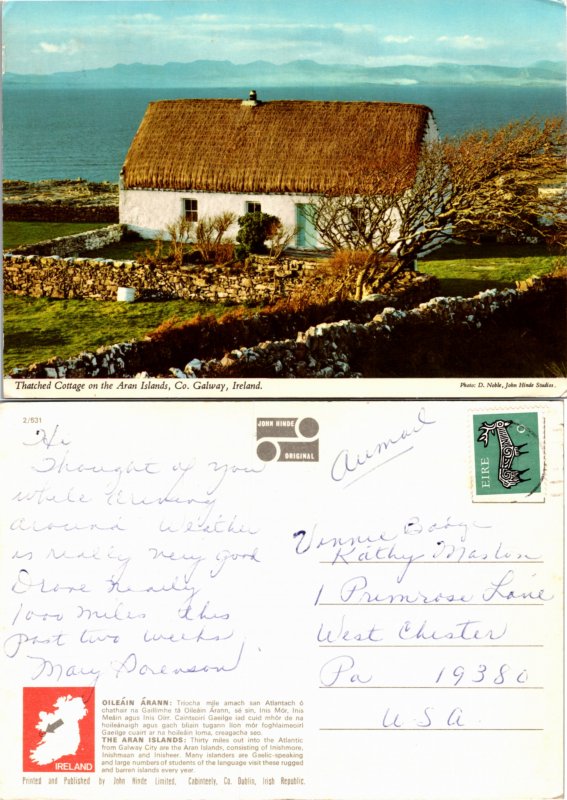 Thatched Cottage on the Aran Islands, Co. Galway, Ireland.
Photo: D. Noble, John Hinde Studios.
2/531
JOHN HINDE
ORIGINAL
Airmail
EIRE
Hi
Thought of you
while driving
around Weather
is really very good
Drove nearly
1000 miles this
past two weeks
Mary Sorenson
Vonnie
Kathy Maston
1 Primrose Lane
West Chester
Pa 19380
USA
IRELAND
OILEÁIN ÁRANN: Tríocha míle amach san Atlantach ó
chathair na Gaillimhe tá Oileáin Árann, sé sin, Inis Mór, Inis
Meáin agus Inis Oírr. Caintsoirí Gaeilge iad cuid mhór de na
hoileánaigh agus gach bliain tugann líon mór foghlaimeoirí
Gaeilge cuairt ar na hoileáin loma, creagacha seo.
THE ARAN ISLANDS: Thirty miles out into the Atlantic
from Galway City are the Aran Islands, consisting of Inishmore,
Inishmaan and Inisheer. Many islanders are Gaelic-speaking
and large numbers of students of the language visit these rugged
and barren islands every year.
Printed and Published by John Hinde Limited, Cabinteely, Co. Dublin, Irish Republic.